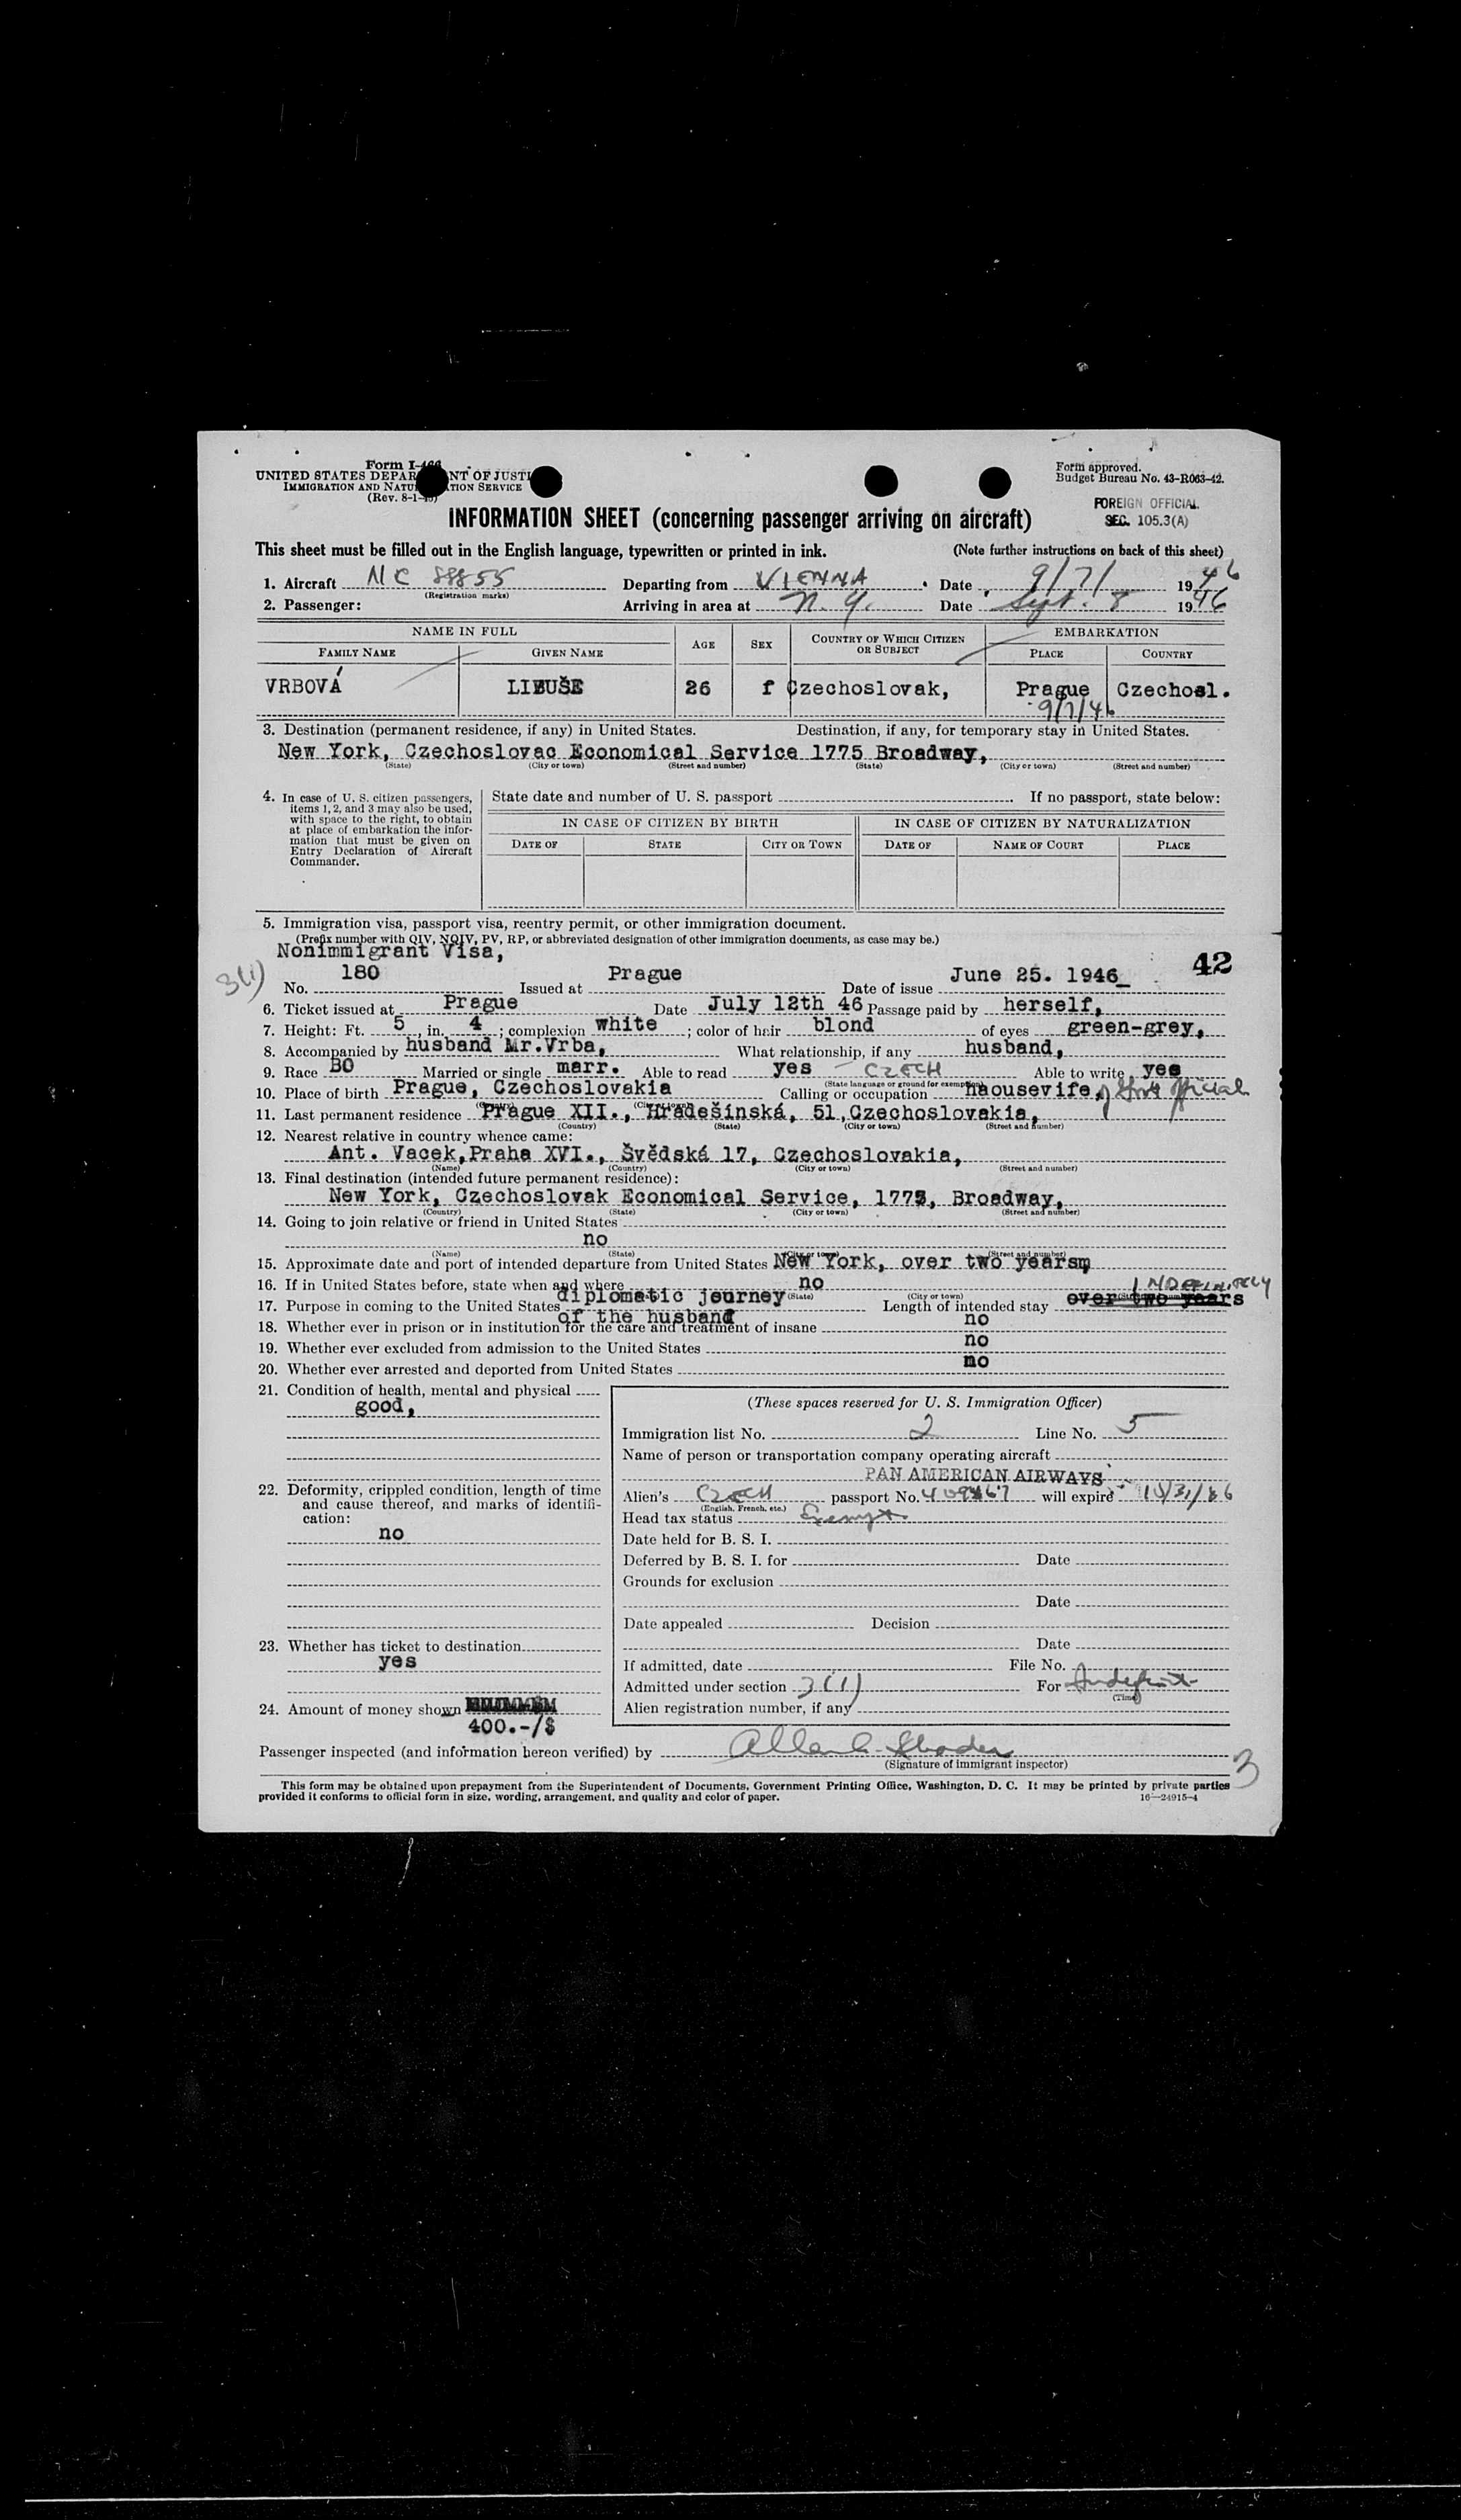 Form I-466
UNITED STATES DEPARTMENT OF JUSTICE
IMMIGRATION AND NATURALIZATION SERVICE
(Rev. 8-1-45)
Form approved.
Budget Bureau No. 43-R063-42.
FOREIGN OFFICIAL
SEC. 105.3(A)
INFORMATION SHEET (concerning passenger arriving on aircraft)
This sheet must be filled out in the English language, typewritten or printed in ink. (Note further instructions on back of this sheet)
1. Aircraft NC 88855 Departing from VIENNA Date 9/7/ 1946
(Registration marks)
2. Passenger: Arriving in area at N.Y. Date Sept. 8 1946
NAME IN FULL AGE SEX COUNTRY OF WHICH CITIZEN OR SUBJECT EMBARKATION
FAMILY NAME GIVEN NAME PLACE COUNTRY
VRBOVÁ LIBUŠE 26 f Czechoslovak, Prague Czechosl.
9/7/46
3. Destination (permanent residence, if any) in United States. Destination, if any, for temporary stay in United States.
New York, Czechoslovac Economical Service 1775 Broadway,
(State) (City or town) (Street and number) (State) (City or town) (Street and number)
4. In case of U. S. citizen passengers, items 1, 2, and 3 may also be used, with space to the right, to obtain at place of embarkation the information that must be given on Entry Declaration of Aircraft Commander.
State date and number of U. S. passport If no passport, state below:
IN CASE OF CITIZEN BY BIRTH IN CASE OF CITIZEN BY NATURALIZATION
DATE OF STATE CITY OR TOWN DATE OF NAME OF COURT PLACE
5. Immigration visa, passport visa, reentry permit, or other immigration document.
(Prefix number with QIV, NQIV, PV, RP, or abbreviated designation of other immigration documents, as case may be.)
Nonimmigrant Visa,
42
3(1)
No. 180 Issued at Prague Date of issue June 25. 1946
6. Ticket issued at Prague Date July 12th 46 Passage paid by herself,
7. Height: Ft. 5 in. 4; complexion white; color of hair blond of eyes green-grey,
8. Accompanied by husband Mr.Vrba, What relationship, if any husband,
9. Race BO Married or single marr. Able to read yes - CZECH Able to write yes
(State language or ground for exemption)
10. Place of birth Prague, Czechoslovakia Calling or occupation haousevife, of Govt official
(Country) (City or town)
11. Last permanent residence Prague XII., Hradešinská, 51, Czechoslovakia,
(Country) (State) (City or town) (Street and number)
12. Nearest relative in country whence came:
Ant. Vacek, Praha XVI., Švědská 17, Czechoslovakia,
(Name) (Country) (City or town) (Street and number)
13. Final destination (intended future permanent residence):
New York, Czechoslovak Economical Service, 1775, Broadway,
(Country) (State) (City or town) (Street and number)
14. Going to join relative or friend in United States
no
(Name) (State) (City or town) (Street and number)
15. Approximate date and port of intended departure from United States New York, over two years
16. If in United States before, state when and where no
(State) (City or town) (Street and number)
INDEFINITELY
17. Purpose in coming to the United States diplomatic journey of the husband Length of intended stay over two years
18. Whether ever in prison or in institution for the care and treatment of insane no
19. Whether ever excluded from admission to the United States no
20. Whether ever arrested and deported from United States no
21. Condition of health, mental and physical
good,
22. Deformity, crippled condition, length of time and cause thereof, and marks of identification:
no
23. Whether has ticket to destination
yes
24. Amount of money shown
400.-/$
(These spaces reserved for U. S. Immigration Officer)
Immigration list No. 2 Line No. 5
Name of person or transportation company operating aircraft
PAN AMERICAN AIRWAYS
Alien's CZECH passport No. will expire
(English, French, etc.)
Head tax status Exempt
Date held for B. S. I.
Deferred by B. S. I. for Date
Grounds for exclusion
Date
Date appealed Decision
Date
If admitted, date File No.
Admitted under section 3(1) For Indefinite
(Time)
Alien registration number, if any
Passenger inspected (and information hereon verified) by
(Signature of immigrant inspector)
3
This form may be obtained upon prepayment from the Superintendent of Documents, Government Printing Office, Washington, D. C. It may be printed by private parties
provided it conforms to official form in size, wording, arrangement, and quality and color of paper. 16—24915-4